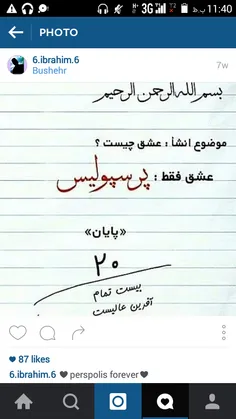 3G ب.ظ 11:40
PHOTO
6.ibrahim.6
Bushehr
7w
بسم الله الرحمن الرحیم
موضوع انشأ : عشق چیست ؟
عشق فقط : پرسپولیس
«پایان»
۲۰
بیست تمام
آفرین عالیست
87 likes
6.ibrahim.6 🖤 perspolis forever🖤